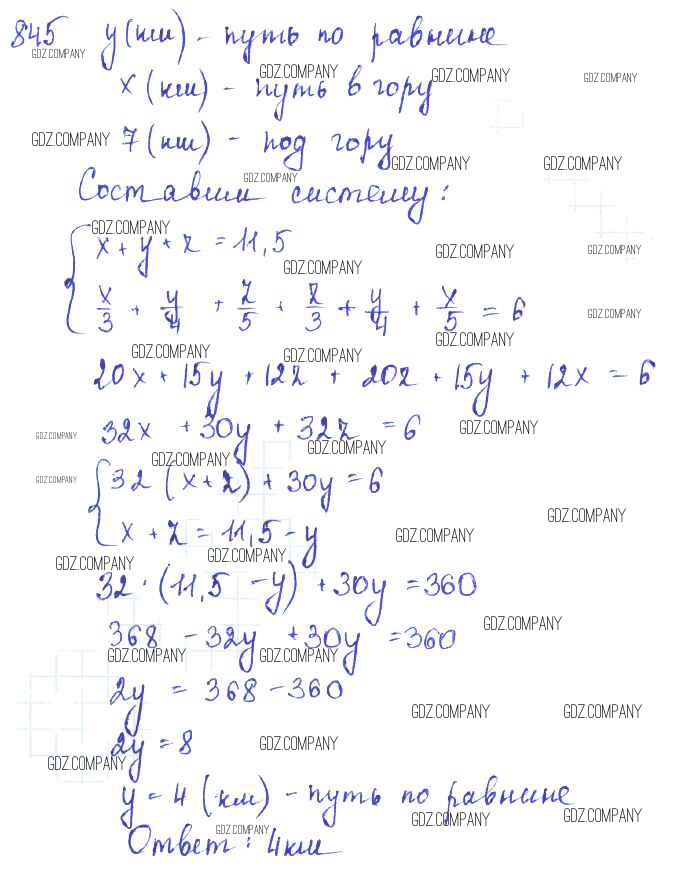 845 y (км) - путь по равнине
GDZ.COMPANY
x (км) - путь в гору
GDZ.COMPANY GDZ.COMPANY GDZ.COMPANY
7 (км) - под гору
GDZ.COMPANY GDZ.COMPANY GDZ.COMPANY
GDZ.COMPANY
Составим систему:
GDZ.COMPANY
x + y + z = 11,5
GDZ.COMPANY GDZ.COMPANY GDZ.COMPANY
x/3 + y/4 + z/5 + z/3 + y/4 + x/5 = 6
GDZ.COMPANY
GDZ.COMPANY GDZ.COMPANY GDZ.COMPANY
20x + 15y + 12z + 20z + 15y + 12x = 6
32x + 30y + 32z = 6
GDZ.COMPANY GDZ.COMPANY GDZ.COMPANY
GDZ.COMPANY GDZ.COMPANY
32 (x + z) + 30y = 6
GDZ.COMPANY
x + z = 11,5 - y
GDZ.COMPANY
GDZ.COMPANY GDZ.COMPANY
32 · (11,5 - y) + 30y = 360
368 - 32y + 30y = 360
GDZ.COMPANY
GDZ.COMPANY GDZ.COMPANY
2y = 368 - 360
GDZ.COMPANY GDZ.COMPANY
2y = 8
GDZ.COMPANY GDZ.COMPANY
y = 4 (км) - путь по равнине
GDZ.COMPANY GDZ.COMPANY GDZ.COMPANY
Ответ: 4 км